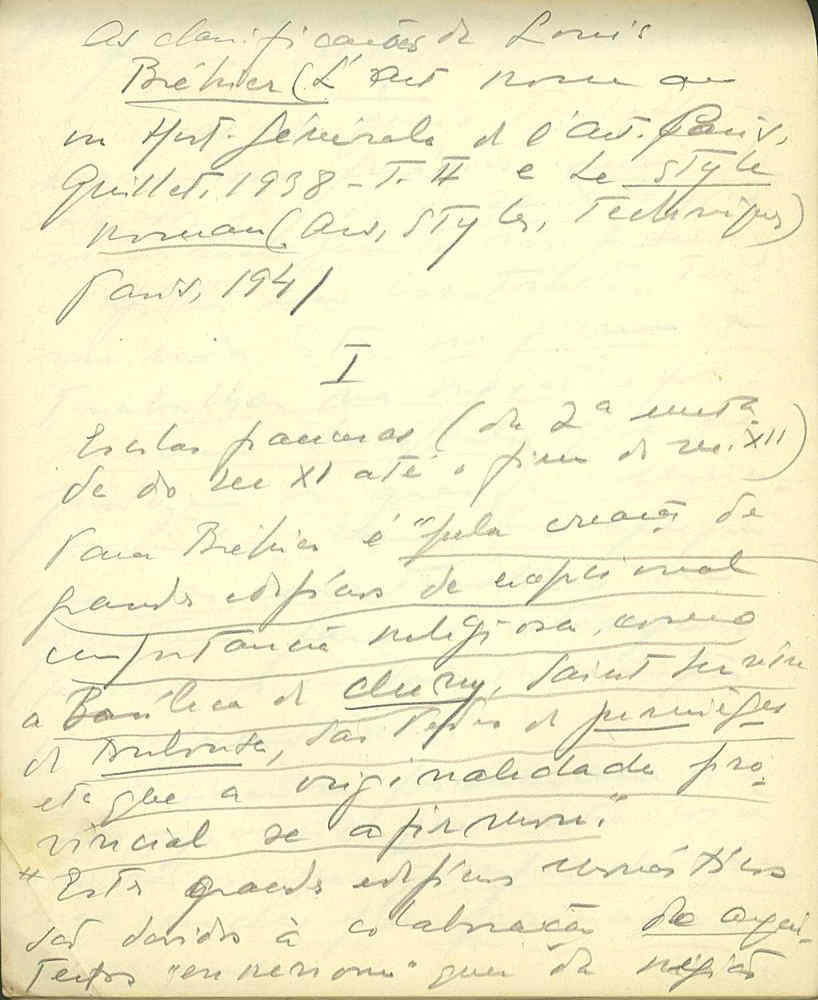 As classificações de Louis
Bréhier (L'Art roman
in Hist. Générale de l'Art. Paris,
Quillet, 1938 - T. II e Le style
roman (Arts, Styles, Techniques)
Paris, 1941
I
Escolas francesas (da 2ª meta
de do sec XI até o fim do sec. XII)
Para Bréhier é "pela creação de
grandes edifícios de excepcional
importancia religiosa, como
a Basílica de Cluny, Saint Sernin
de Toulouse, São Pedro de
etc que a originalidade pro-
vincial se afirmou."
"Estes grandes edifícios monásticos
são devidos à colaboração de arqui-
tectos quer da região